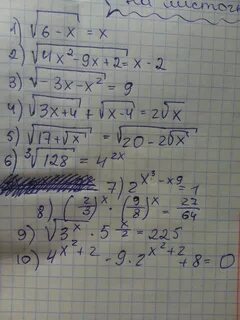 на листоч
1) √6 - x = x
2) √4x² - 9x + 2 = x - 2
3) √-3x - x² = 9
4) √3x + 4 + √x - 4 = 2√x
5) √17 + √x = √20 - 2√x
6) ³√128 = 4²ˣ
7) 2^(x³ - x9) = 1
8) (2/3)ˣ · (9/8)ˣ = 27/64
9) √3ˣ · 5^(x/2) = 225
10) 4^(x² + 2) - 9 · 2^(x² + 2) + 8 = 0